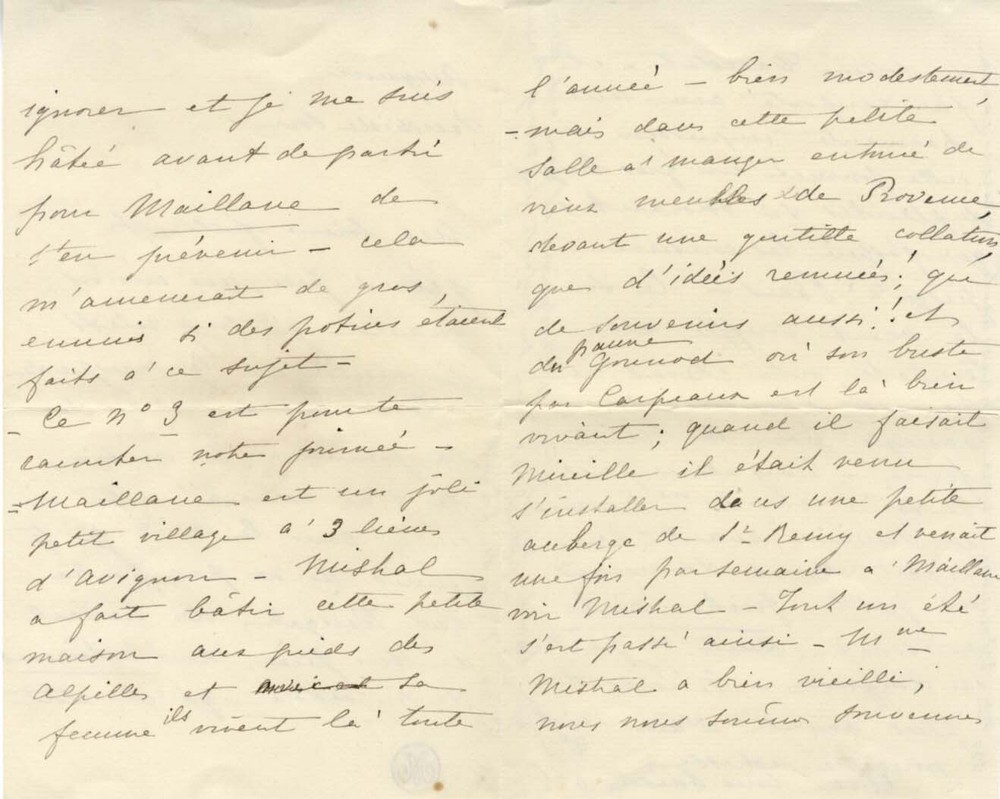 ignorer et je me suis
hâtée avant de partir
pour Maillane de
t'en prévenir – cela
m'amenerait de gros
ennuis si des potins étaient
faits à ce sujet –
– Ce N° 3 est pour te
raconter notre journée –
– Maillane est un joli
petit village à 3 lieues
d'Avignon – Mistral
a fait bâtir cette petite
maison aux pieds des
Alpilles et sa
femme ils vivent là toute
l'année – bien modestement,
– mais dans cette petite
salle à manger entouré de
vieux meubles de Provence
devant une gentille collation,
que d'idées remuées! que
de souvenirs aussi! et
du pauvre Gounod où son buste
par Carpeaux est là bien
vivant; quand il faisait
Mireille il était venu
s'installer dans une petite
auberge de St Remy et venait
une fois par semaine à Maillane
voir Mistral – Tout un été
s'est passé ainsi – Mme
Mistral a bien vieilli,
nous nous sommes souvenues